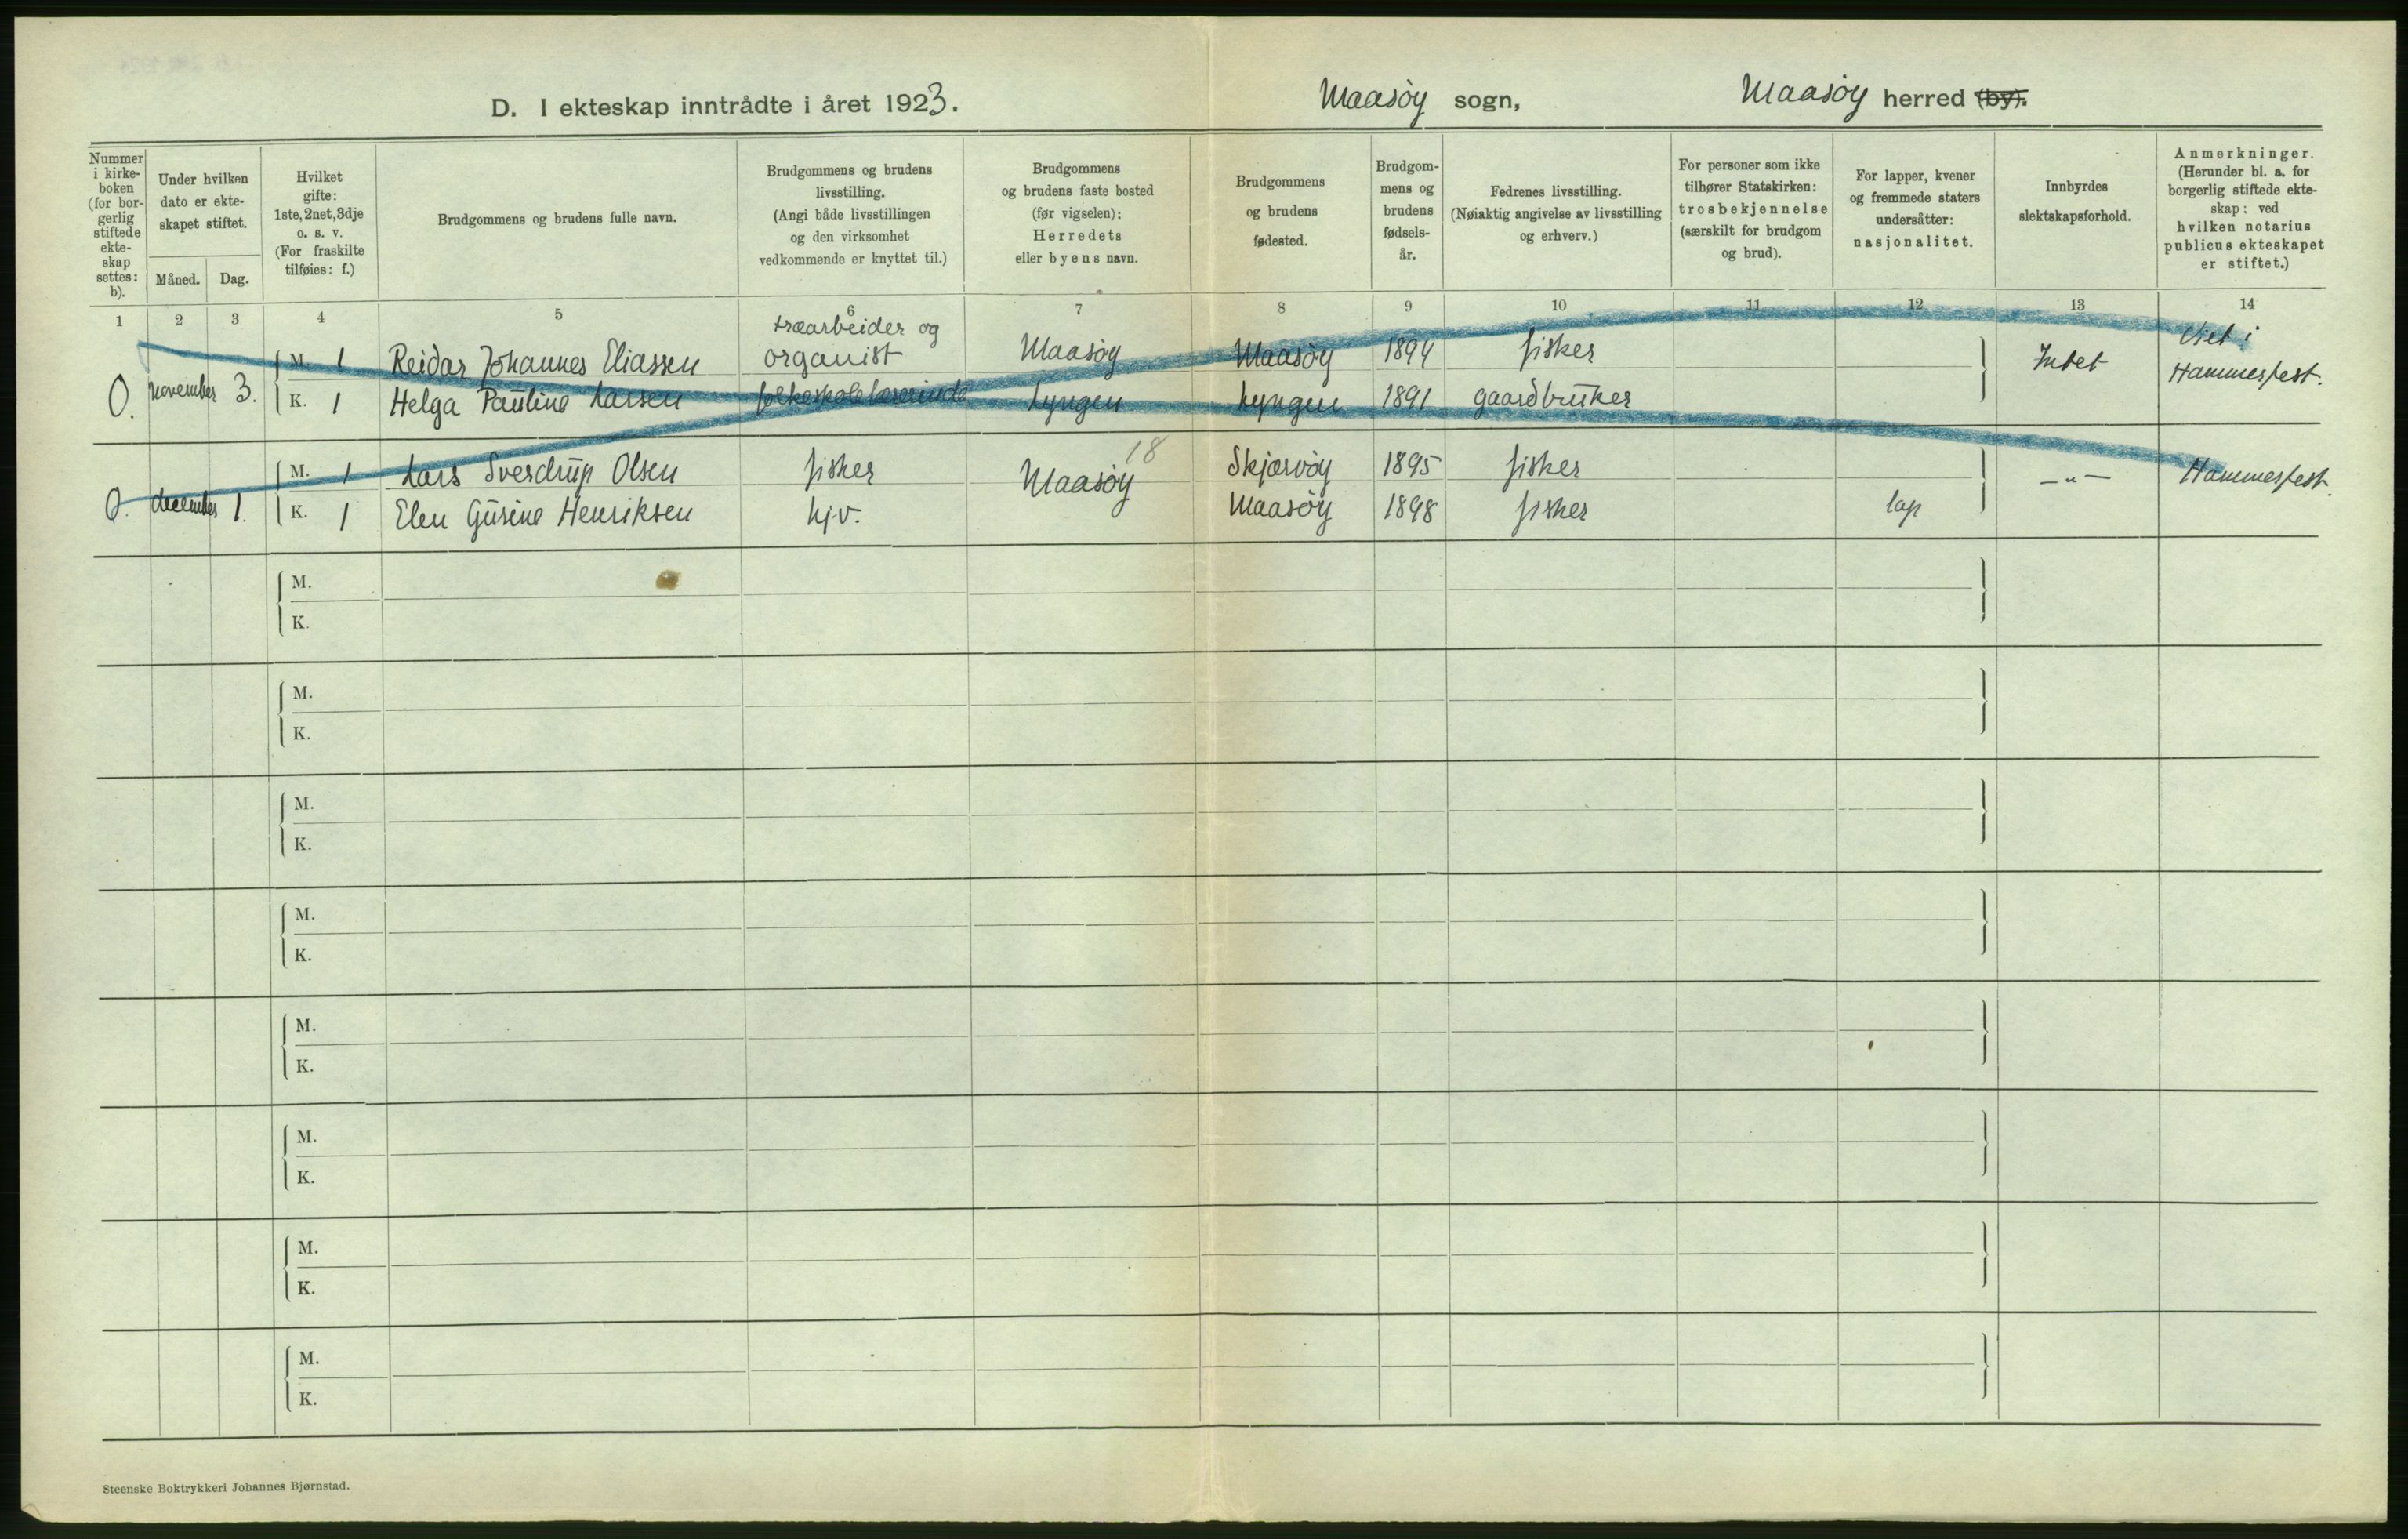 D. I ekteskap inntrådte i året 1923. Maasöy sogn, Maasöy herred (by).
Nummer
i kirke-
boken
(for bor-
gerlig
stiftede
ekte-
skap
settes:
b).
Under hvilken
dato er ekte-
skapet stiftet.
Måned. Dag.
Hvilket
gifte:
1ste, 2net, 3dje
o. s. v.
(For fraskilte
tilføies: f.)
Brudgommens og brudens fulle navn.
Brudgommens og brudens
livsstilling.
(Angi både livsstillingen
og den virksomhet
vedkommende er knyttet til.)
Brudgommens
og brudens faste bosted
(før vigselen):
Herredets
eller byens navn.
Brudgommens
og brudens
fødested.
Brudgom-
mens og
brudens
fødsels-
år.
Fedrenes livsstilling.
(Nøiaktig angivelse av livsstilling
og erhverv.)
For personer som ikke
tilhører Statskirken:
trosbekjennelse
(særskilt for brudgom
og brud).
For lapper, kvener
og fremmede staters
undersåtter:
nasjonalitet.
Innbyrdes
slektskapsforhold.
Anmerkninger.
(Herunder bl. a. for
borgerlig stiftede ekte-
skap: ved
hvilken notarius
publicus ekteskapet
er stiftet.)
1 2 3 4 5 6 7 8 9 10 11 12 13 14
træarbeider og
0. november 3. M. 1 Reidar Johannes Eliassen organist Maasöy Maasöy 1894 fisker Intet Viet i Hammerfest.
K. 1 Helga Pauline Larsen folkeskolelærerinde Lyngen Lyngen 1891 gaardbruker
18
0. december 1. M. 1 Lars Sverdrup Olsen fisker Maasöy Skjærvöy 1895 fisker —„— Hammerfest.
K. 1 Elen Gurine Henriksen hjv. Maasöy 1898 fisker lap
M.
K.
M.
K.
M.
K.
M.
K.
M.
K.
M.
K.
M.
K.
M.
K.
Steenske Boktrykkeri Johannes Bjørnstad.